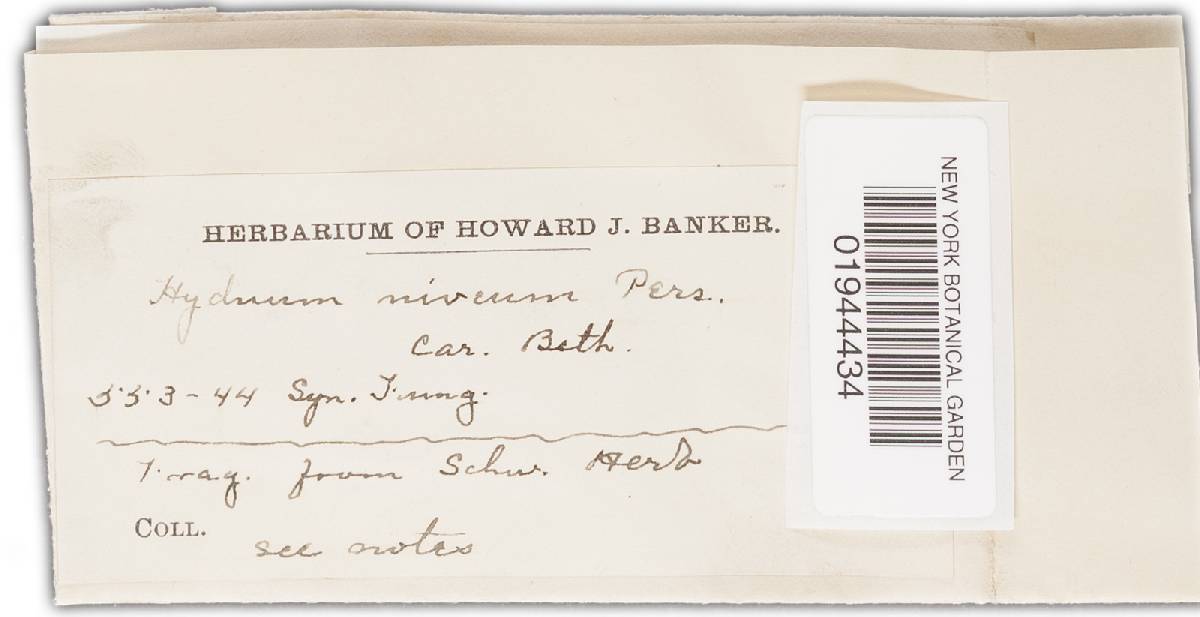 HERBARIUM OF HOWARD J. BANKER.
Hydnum niveum Pers.
Car. Beth.
553-44 Syn. Fung.
Frag. from Schw. Herb
COLL. see notes
NEW YORK BOTANICAL GARDEN
01944434